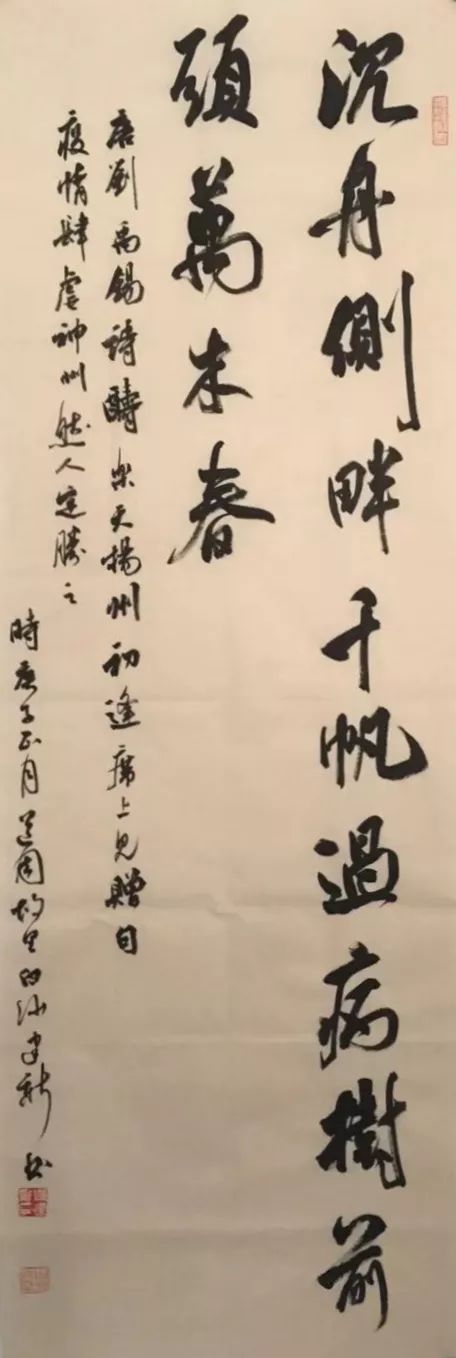 沉舟側畔千帆過病樹前
頭萬木春
唐劉禹錫詩酬樂天揚州初逢席上見贈句
疫情肆虐神州然人定勝之
時庚子正月 周故里白沙建新書